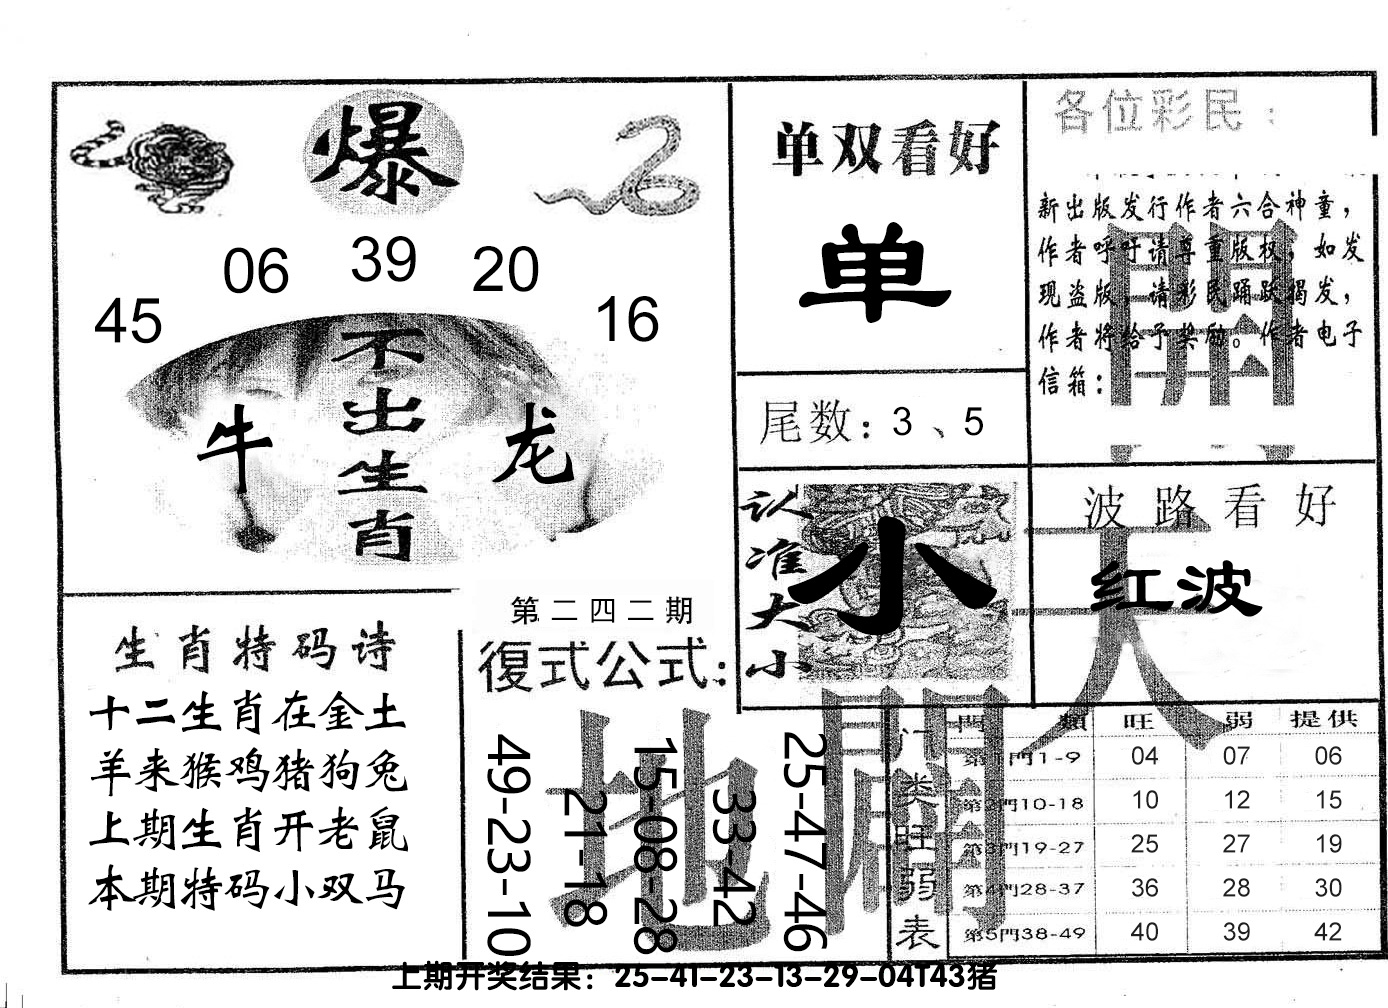 爆
45
06
39
20
16
不出生肖
牛
龙
单双看好
单
尾数：3、5
各位彩民：
新出版发行作者六合神童，
作者呼吁请尊重版权，如发
现盗版，请彩民踊跃揭发，
作者将给予奖励。作者电子
信箱：
開
认准大小
小
波路看好
红波
天
生肖特码诗
十二生肖在金土
羊来猴鸡猪狗兔
上期生肖开老鼠
本期特码小双马
第二四二期
復式公式：
49-23-10
21-18
15-08-28
33-42
25-47-46
地
門类旺弱表
門類 旺 弱 提供
第1門1-9 04 07 06
第2門10-18 10 12 15
第3門19-27 25 27 19
第4門28-37 36 28 30
第5門38-49 40 39 42
上期开奖结果：25-41-23-13-29-04T43猪